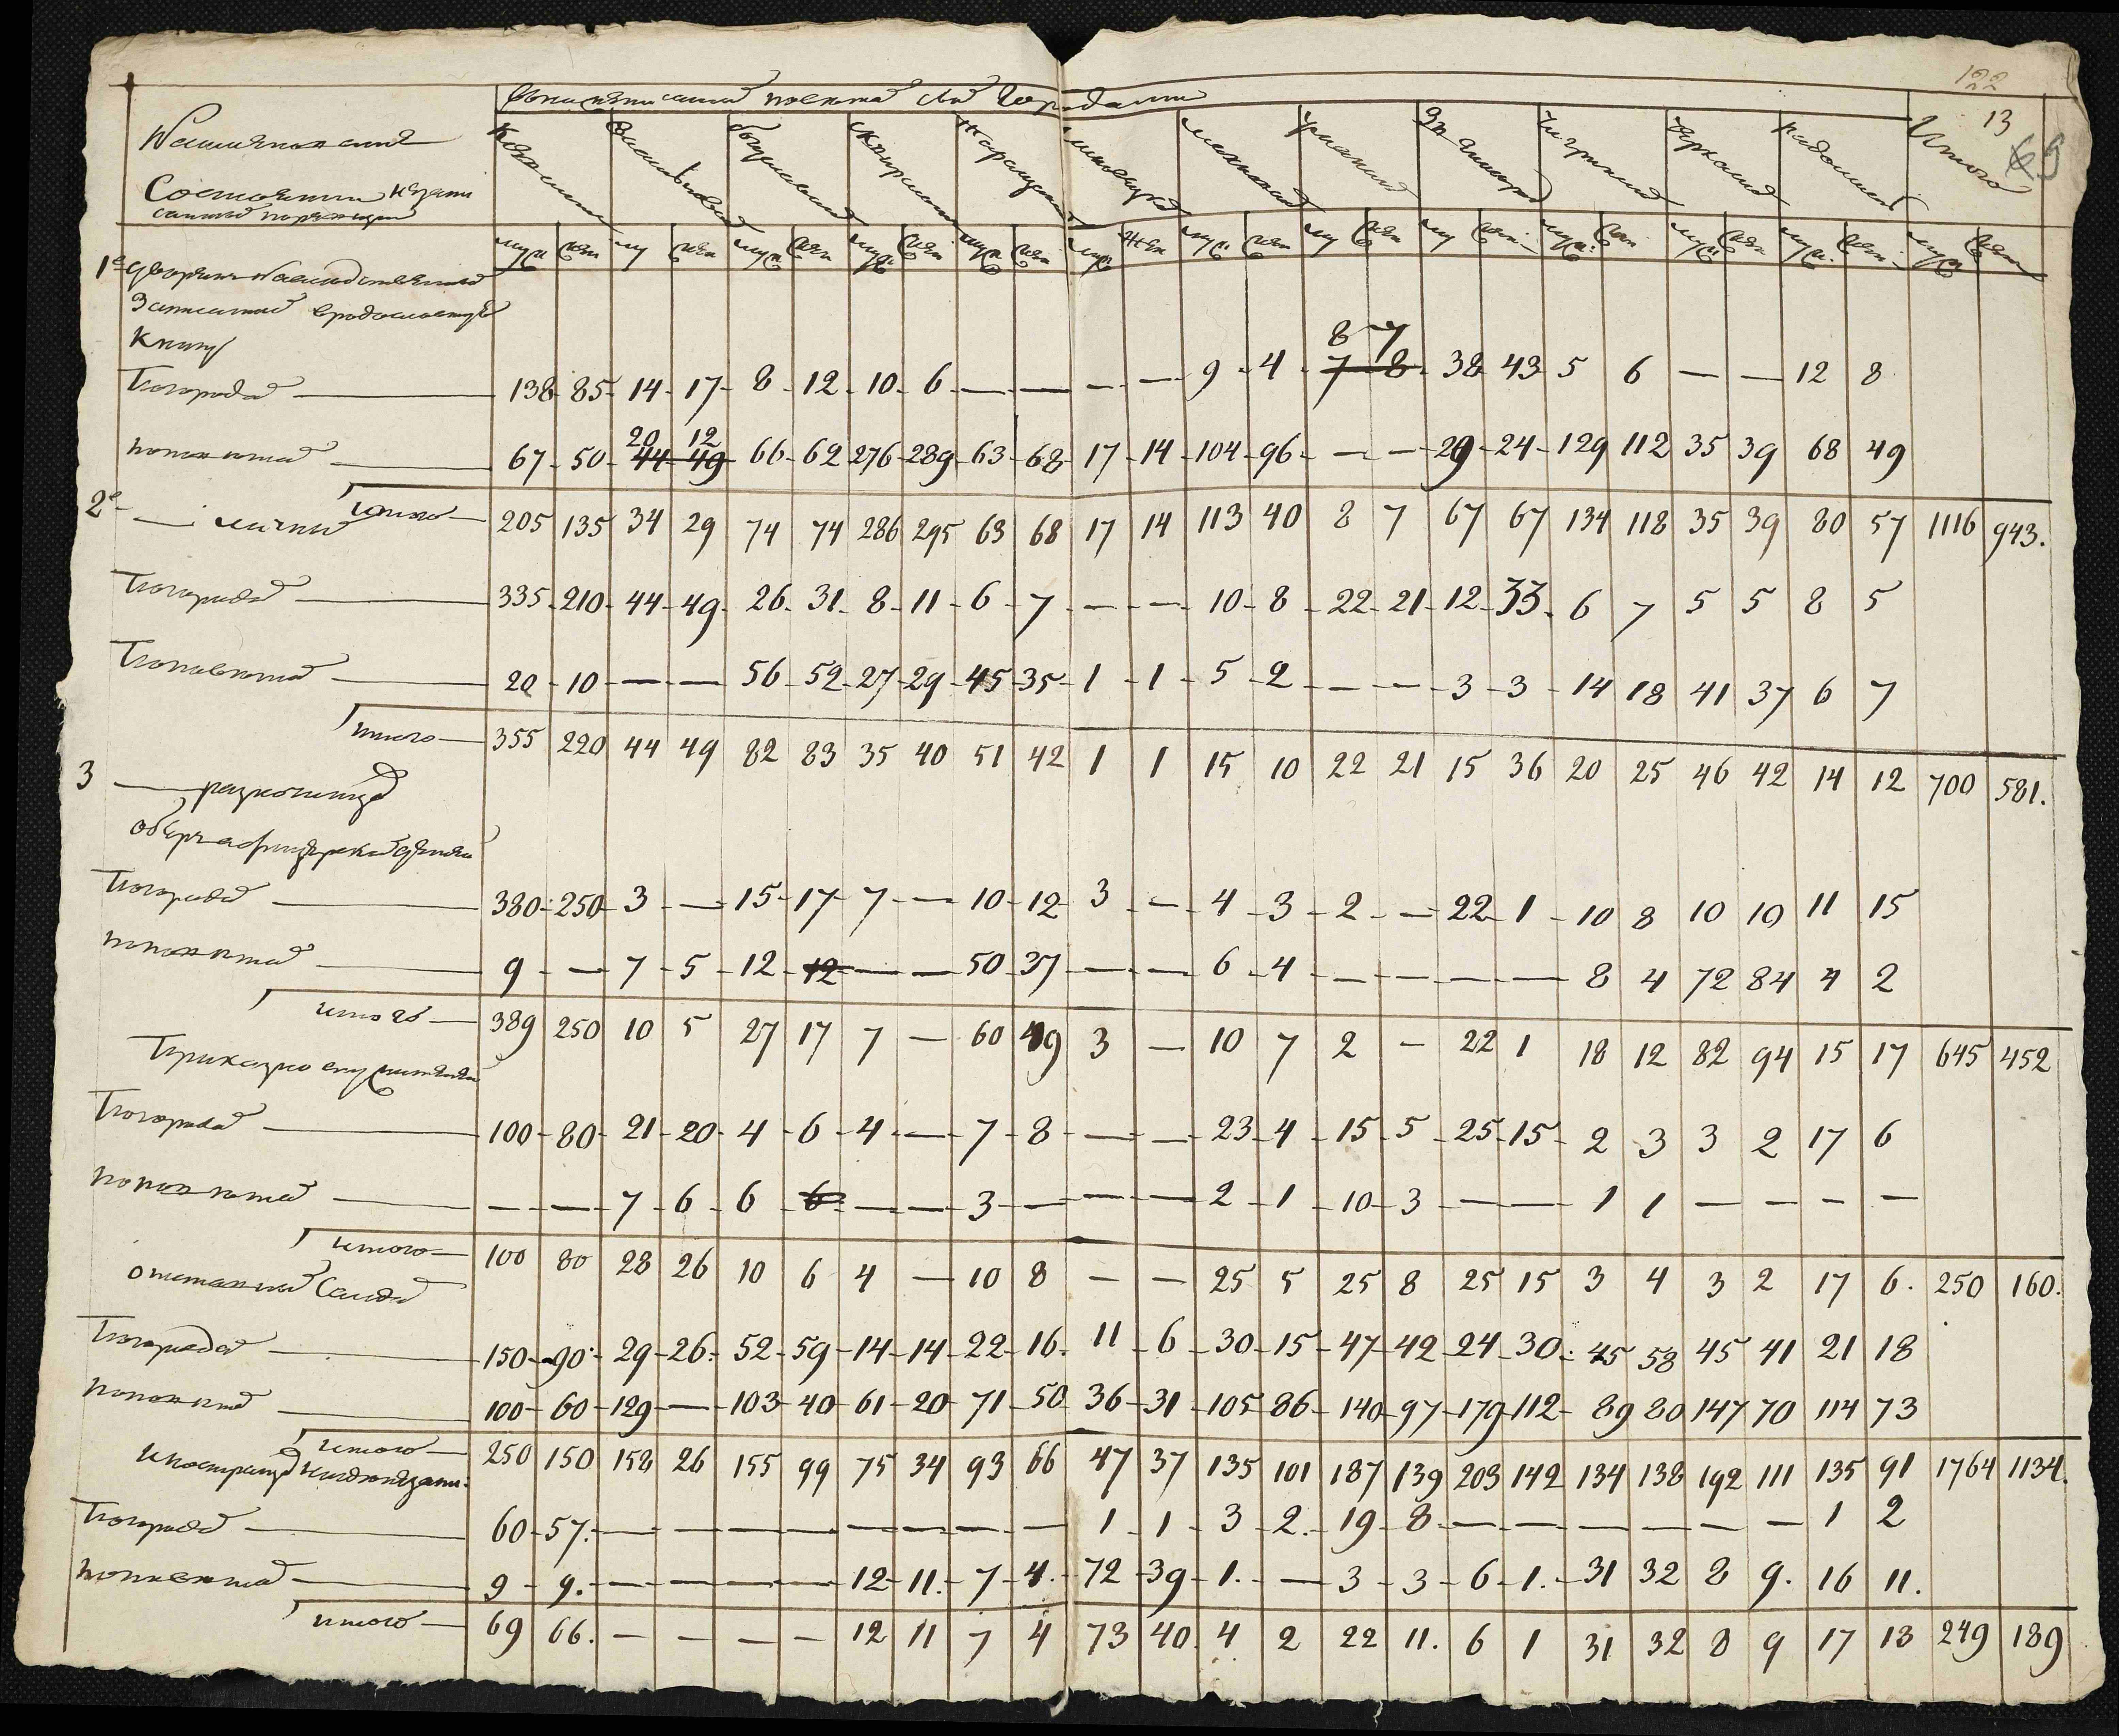 122
13
69
Наименование
Состояний
Итого
муж жен му жен муж жен муж жен муж жен муж жен муж жен му жен му жен муж. жен муж жен муж. жен. муж жен
1е дворян
Книгу
8 7
По городам 138 85 14 17 8 12 10 6 — — — — 9 4 7 8 38 43 5 6 — — 12 8
20 12
по поветам 67 50 44 49 66 62 276 289 63 68 17 14 104 96 — — 29 24 129 112 35 39 68 49
итого 205 135 34 29 74 74 286 295 63 68 17 14 113 40 8 7 67 67 134 118 35 39 80 57 1116 943.
2е — личных
По городам 335 210 44 49 26 31 8 11 6 7 — — 10 8 22 21 12 33 6 7 5 5 8 5
По поветам 20 10 — — 56 52 27 29 45 35 1 1 5 2 — — 3 3 14 18 41 37 6 7
итого 355 220 44 49 82 83 35 40 51 42 1 1 15 10 22 21 15 36 20 25 46 42 14 12 700 581.
3 — разночинцев
обер офицерских детей
По городам 380 250 3 — 15 17 7 — 10 12 3 — 4 3 2 — 22 1 10 8 10 10 11 15
по поветам 9 — 7 5 12 12 — — 50 37 — — 6 4 — — — — 8 4 72 84 4 2
итого 389 250 10 5 27 17 7 — 60 49 3 — 10 7 2 — 22 1 18 12 82 94 15 17 645 452
Приказно служителей
По городам 100 80 21 20 4 6 4 — 7 8 — — 23 4 15 5 25 15 2 3 3 2 17 6
по поветам — — 7 6 6 6 — — 3 — — — 2 1 10 3 — — 1 1 — — — —
итого 100 80 28 26 10 6 4 — 10 8 — — 25 5 25 8 25 15 3 4 3 2 17 6. 250 160.
отставных солдат
По городам 150 90 29 26 52 59 14 14 22 16 11 6 30 15 47 42 24 30 45 58 45 41 21 18
по поветам 100 60 129 — 103 40 61 20 71 50 36 31 105 86 140 97 179 112 89 80 147 70 114 73
итого 250 150 158 26 155 99 75 34 93 66 47 37 135 101 187 139 203 142 134 138 192 111 135 91 1764 1134.
иностранцев
По городам 60 57. — — — — — — — — 1 1 3 2. 19 8 — — — — — — 1 2
по поветам 9 9. — — — — 12 11. 7 4. 72 39 1. — 3 3 6 1. 31 32 8 9. 16 11.
итого 69 66. — — — — 12 11 7 4 73 40. 4 2 22 11. 6 1 31 32 8 9 17 13 249 189